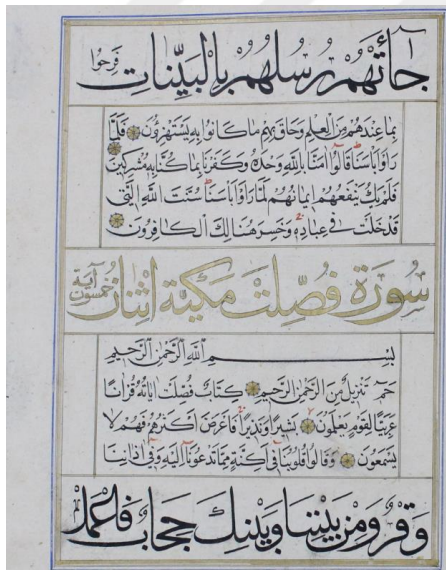 جائتهم رسلهم بالبينات فرحوا
بما عندهم من العلم وحاق بهم ما كانوا به يستهزؤن فلما
راوا باسنا قالوا امنا بالله وحده وكفرنا بما كنا به مشركين
فلم يك ينفعهم ايمانهم لما راوا باسنا سنت الله التي
قد خلت في عباده وخسر هنالك الكافرون
سورة فصلت مكية اثنان خمسون آية
بسم الله الرحمن الرحيم
حم تنزيل من الرحمن الرحيم كتاب فصلت اياته قرانا
عربيا لقوم يعلمون بشيرا ونذيرا فاعرض اكثرهم فهم لا
يسمعون وقالوا قلوبنا في اكنة مما تدعونا اليه وفي اذاننا
وقر ومن بيننا وبينك حجاب فاعمل